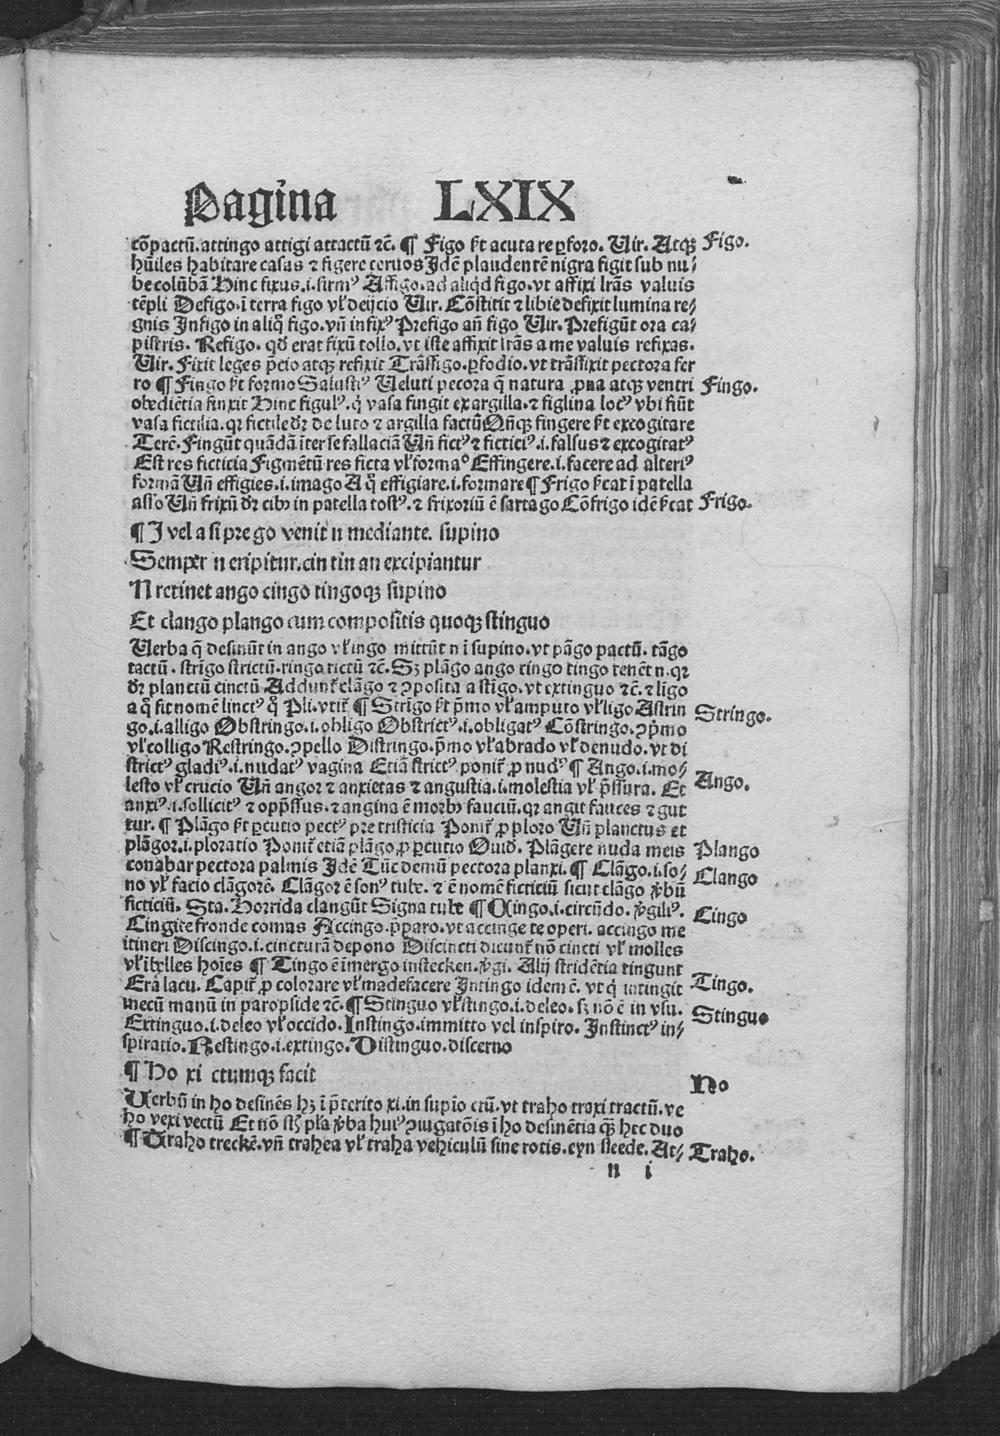 Pagina LXIX
cõpactũ. attingo attigi attactũ ⁊c̃. ¶ Figo ẜt acuta re ꝑforo. Uir. Atqꝫ Figo.
hũiles habitare casas ⁊ figere ceruos Idẽ plaudentẽ nigra figit sub nu⸗
be colũbã Hinc fixus .i. firmꝰ Affigo. ad aliqd figo. vt affixi lrãs valuis
tẽpli Defigo. ĩ terra figo vł deijcio Uir. Cõstitit ⁊ libie defixit lumina re⸗
gnis Infigo in aliq̃ figo. vñ infixꝰ Prefigo añ figo Uir. Prefigũt ora ca⸗
pistris. Refigo. qd̃ erat fixũ tollo. vt iste affixit lrãs a me valuis refixas.
Uir. Fixit leges p̃cio atqꝫ refixit Trãsfigo. ꝑfodio. vt trãsfixit pectora fer
ro ¶ Fingo ẜt formo Salustiꝰ Ueluti pecora q̃ natura ꝓna atqꝫ ventri Fingo.
obediẽtia finxit Hinc figulꝰ. q̃ vasa fingit ex argilla. ⁊ figlina locꝰ vbi fiũt
vasa fictilia. qr fictile dr̃ de luto ⁊ argilla factũ Qñqꝫ fingere ẜt excogitare
Terẽ. Fingũt quãdã ĩter se fallaciã Uñ fictꝰ ⁊ ficticiꝰ .i. falsus ⁊ excogitatꝰ
Est res ficticia Figmẽtũ res ficta vł formaº Effingere .i. facere ad alteriꝰ
formã Uñ effigies .i. imago A q̃ effigiare .i. formare ¶ Frigo ẜcat ĩ patella
asso Uñ frixũ dr̃ cibꝰ in patella tostꝰ. ⁊ frixoriũ ẽ sartago Cõfrigo idẽ ẜcat Frigo.
¶ I vel a si pre go venit n mediante. supino
Semper n eripitur. cin tin an excipiantur
N retinet ango cingo tingoqꝫ supino
Et clango plango cum compositis quoqꝫ stinguo
Uerba q̃ desinũt in ango vł ingo mittũt n ĩ supino. vt pãgo pactũ. tãgo
tactũ. strĩgo strictũ. ringo rictũ ⁊c̃. Sꝫ plãgo ango cingo tingo tenẽt n. qr
dr̃ planctũ cinctũ Addunẽ clãgo ⁊ ꝯposita a stĩgo. vt extinguo ⁊c̃. ⁊ lĩgo
a q̃ fit nomẽ linctꝰ q̃ Pli. vtit̃ ¶ Strĩgo ẜt p̃mo vł amputo vł ligo Astrin Stringo.
go .i. alligo Obstringo .i. obligo Obstrictꝰ .i. obligatꝰ Cõstringo. ꝯp̃mo
vł colligo Restringo. ꝯpello Distringo. p̃mo vł abrado vł denudo. vt di
strictꝰ gladiꝰ .i. nudatꝰ vagina Etiã strictꝰ ponit̃ ꝓ nudꝰ ¶ Ango .i. mo⸗ Ango.
lesto vł crucio Uñ angor ⁊ anxietas ⁊ angustia .i. molestia vł p̃ssura. Et
anxiꝰ .i. sollicitꝰ ⁊ opp̃ssus. ⁊ angina ẽ morbꝰ fauciũ. qr angit fauces ⁊ gut
tur. ¶ Plãgo ẜt ꝑcutio pectꝰ pre tristicia Ponit̃ ꝓ ploro Uñ planctus et
plãgor .i. ploratio Ponit̃ etiã plãgo ꝓ ꝑcutio Ouid. Plãgere nuda meis Plango
conabar pectora palmis Idẽ Tũc demũ pectora planxi. ¶ Clãgo .i. so⸗ Clango
no vł facio clãgorẽ. Clãgor ẽ sonꝰ tube. ⁊ ẽ nomẽ ficticiũ sicut clãgo v̾bũ
ficticiũ. Sta. Horrida clangũt Signa tube ¶ Cingo .i. circũdo. v̾giliꝰ. Cingo
Cingite fronde comas Accingo. p̃paro. vt accinge te operi. accingo me
itineri Discingo .i. cincturã depono Discincti dicunt̃ nõ cincti vł molles
vł ĩbelles hoĩes ¶ Tingo ẽ ĩmergo instecken. v̾gi. Alij stridẽtia tingunt Tingo.
Era lacu. Capit̃ ꝓ colorare vł madefacere Intingo idem ẽ. vt q̃ intingit
mecũ manũ in paropside ⁊c̃. ¶ Stinguo vł stingo .i. deleo. sꝫ nõ ẽ in vsu. Stinguo
Extinguo .i. deleo vł occido. Instingo. immitto vel inspiro. Instinctꝰ in⸗
spiratio. Restingo .i. extingo. Distinguo. discerno
¶ Ho xi ctumqꝫ facit Ho
Uerbũ in ho desinẽs hꝫ ĩ p̃terito xi. in supĩo ctũ. vt traho traxi tractũ. ve
ho vexi vectũ Et nõ st̃ pła v̾ba huiꝰ ꝯiugatõis ĩ ho desinẽtia q̃ꝫ hec duo
¶ Traho treckẽ. vñ trahea vł traha vehiculũ sine rotis. eyn sleede. At⸗ Traho.
n i